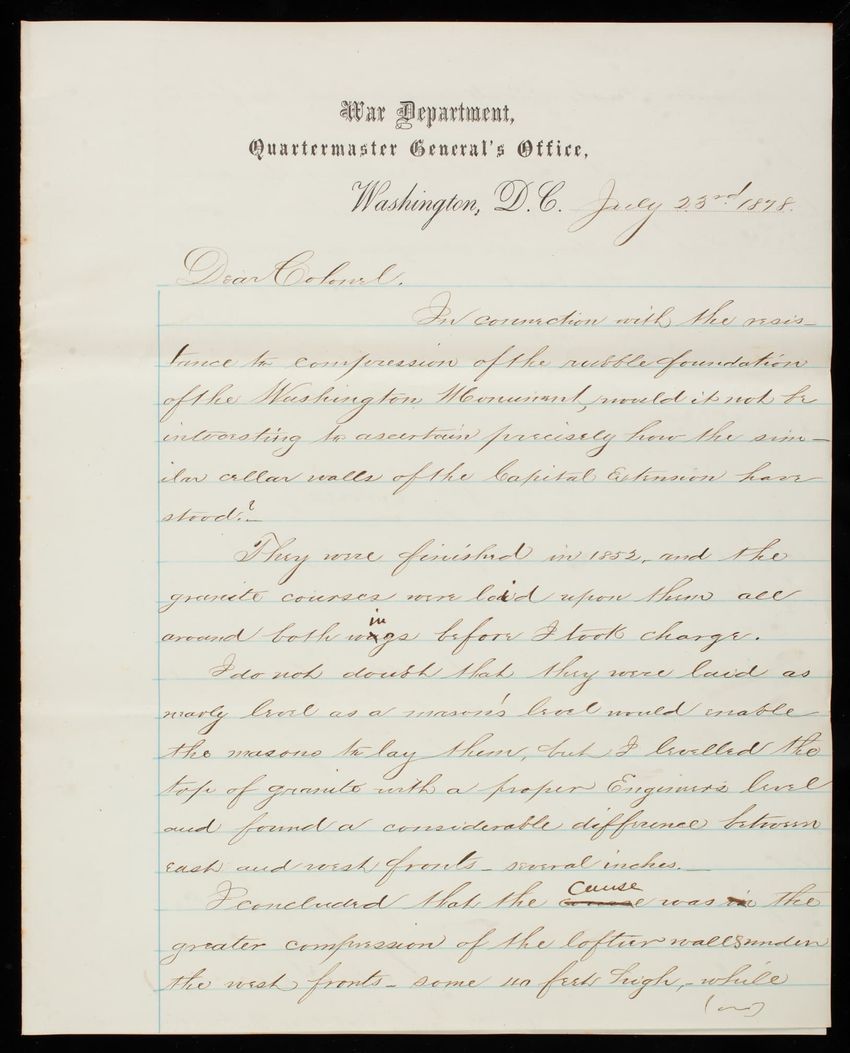 War Department,
Quartermaster General's Office,
Washington, D.C. July 23rd 1878.
Dear Colonel.
In connection with the resis-
tance to compression of the rubble foundation
of the Washington Monument, would it not be
interesting to ascertain precisely how the sim-
ilar cellar walls of the Capitol Extension have
stood?
They were finished in 1852, and the
granite courses were laid upon them all
in
around both wings before I took charge.
I do not doubt that they were laid as
nearly level as a mason's level would enable
the masons to lay them, but I levelled the
top of granite with a proper Engineer's level
and found a considerable difference between
east and west fronts - several inches.
Cause
I concluded that the was in the
greater compression of the loftier walls under
the west fronts - some feet high, - while